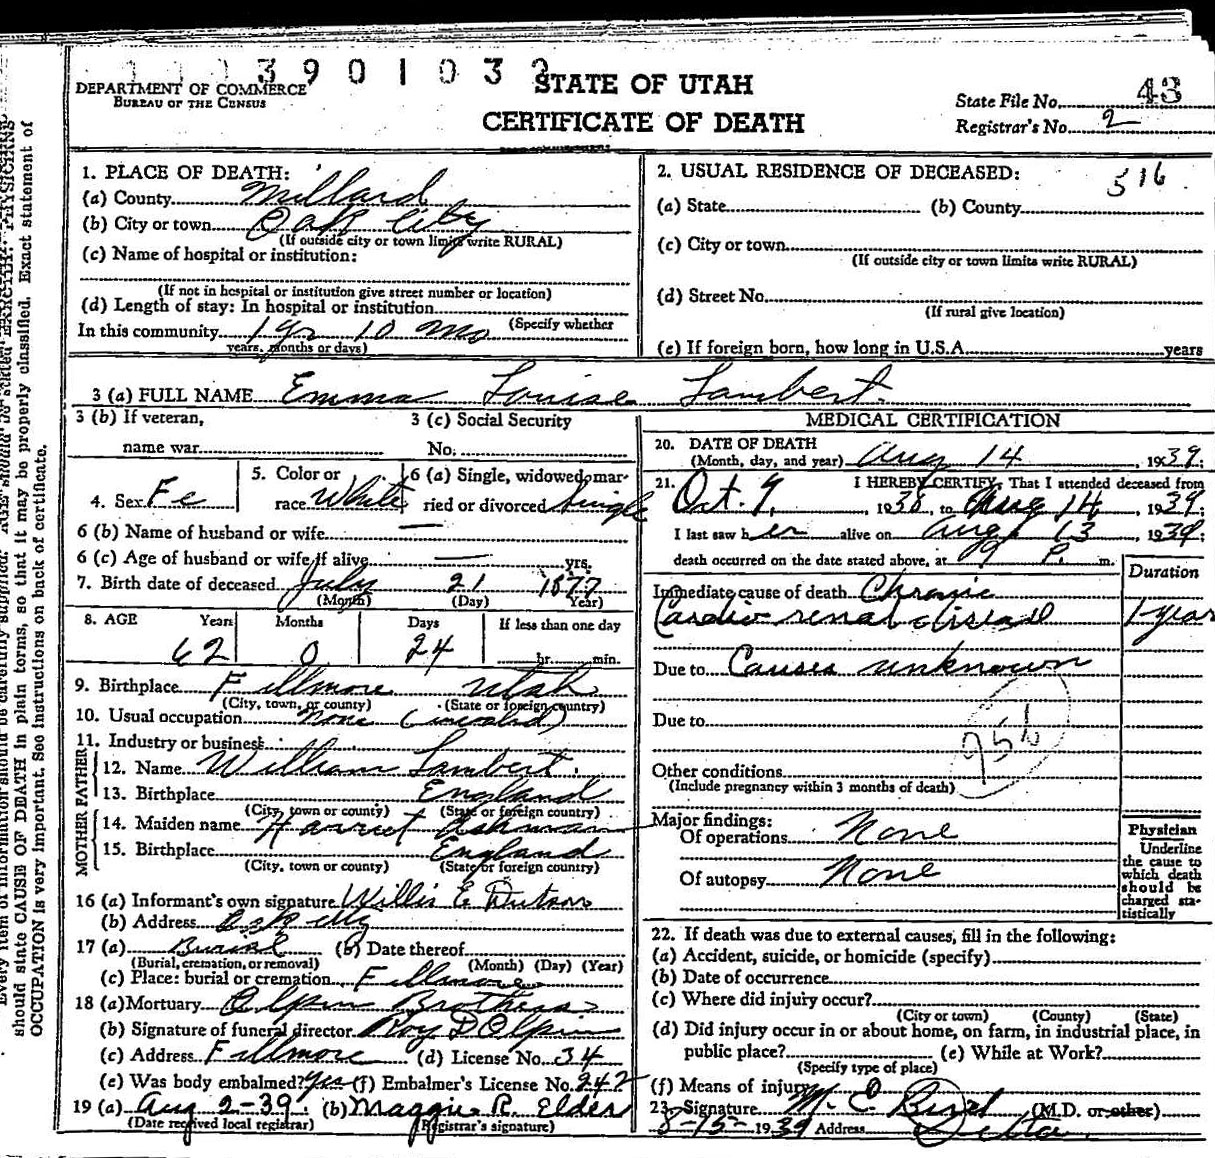 390103
DEPARTMENT OF COMMERCE
BUREAU OF THE CENSUS
STATE OF UTAH
CERTIFICATE OF DEATH
State File No. 43
Registrar's No. 2
1. PLACE OF DEATH:
(a) County Millard
(b) City or town Oak City
(If outside city or town limits write RURAL)
(c) Name of hospital or institution:
(If not in hospital or institution give street number or location)
(d) Length of stay: In hospital or institution
(Specify whether
In this community 1 yr 10 mo
years, months or days)
2. USUAL RESIDENCE OF DECEASED: 516
(a) State (b) County
(c) City or town
(If outside city or town limits write RURAL)
(d) Street No.
(If rural give location)
(e) If foreign born, how long in U.S.A. years
3 (a) FULL NAME Emma Louise Lambert
3 (b) If veteran,
name war
3 (c) Social Security
No.
4. Sex Fe
5. Color or
race White
6 (a) Single, widowed, mar-
ried or divorced Single
6 (b) Name of husband or wife —
6 (c) Age of husband or wife if alive — yrs.
7. Birth date of deceased July 21 1877
(Month) (Day) Year)
8. AGE Years Months Days If less than one day
62 0 24 hr. min.
9. Birthplace Fillmore Utah
(City, town, or county) (State or foreign country)
10. Usual occupation None (invalid)
11. Industry or business
FATHER
12. Name William Lambert.
13. Birthplace England
(City, town or county) (State or foreign country)
MOTHER
14. Maiden name Harriet Ashman
15. Birthplace England
(City, town or county) (State or foreign country)
16 (a) Informant's own signature Willis E. Dutson
(b) Address Oak City
17 (a) Burial (b) Date thereof
(Burial, cremation, or removal) (Month) (Day) (Year)
(c) Place: burial or cremation Fillmore
18 (a) Mortuary Olpin Brothers
(b) Signature of funeral director Roy D Olpin
(c) Address Fillmore (d) License No. 34
(e) Was body embalmed? Yes (f) Embalmer's License No. 242
19 (a) Aug 2-39. (b) Maggie R. Elder
(Date received local registrar) Registrar's signature)
MEDICAL CERTIFICATION
20. DATE OF DEATH
(Month, day, and year) Aug 14, 1939;
21. I HEREBY CERTIFY, That I attended deceased from
Oct. 9, 1938, to Aug 14 1939;
I last saw her alive on Aug 13, 1939;
death occurred on the date stated above, at 9 P. m.
Duration
Immediate cause of death Chronic
Cardio-renal disease 1-year
Due to Causes unknown
Due to
Other conditions
(Include pregnancy within 3 months of death)
Major findings:
Of operations None
Of autopsy None
Physician
Underline
the cause to
which death
should be
charged sta-
tistically
22. If death was due to external causes, fill in the following:
(a) Accident, suicide, or homicide (specify)
(b) Date of occurrence
(c) Where did injury occur?
(City or town) (County) (State)
(d) Did injury occur in or about home, on farm, in industrial place, in
public place? (e) While at Work?
(Specify type of place)
(f) Means of injury
23. Signature M. E. Bird (M.D. or other)
8-15-1939 Address Delta.
should state CAUSE OF DEATH in plain terms, so that it may be properly classified. Exact statement of
OCCUPATION is very important. See instructions on back of certificate.